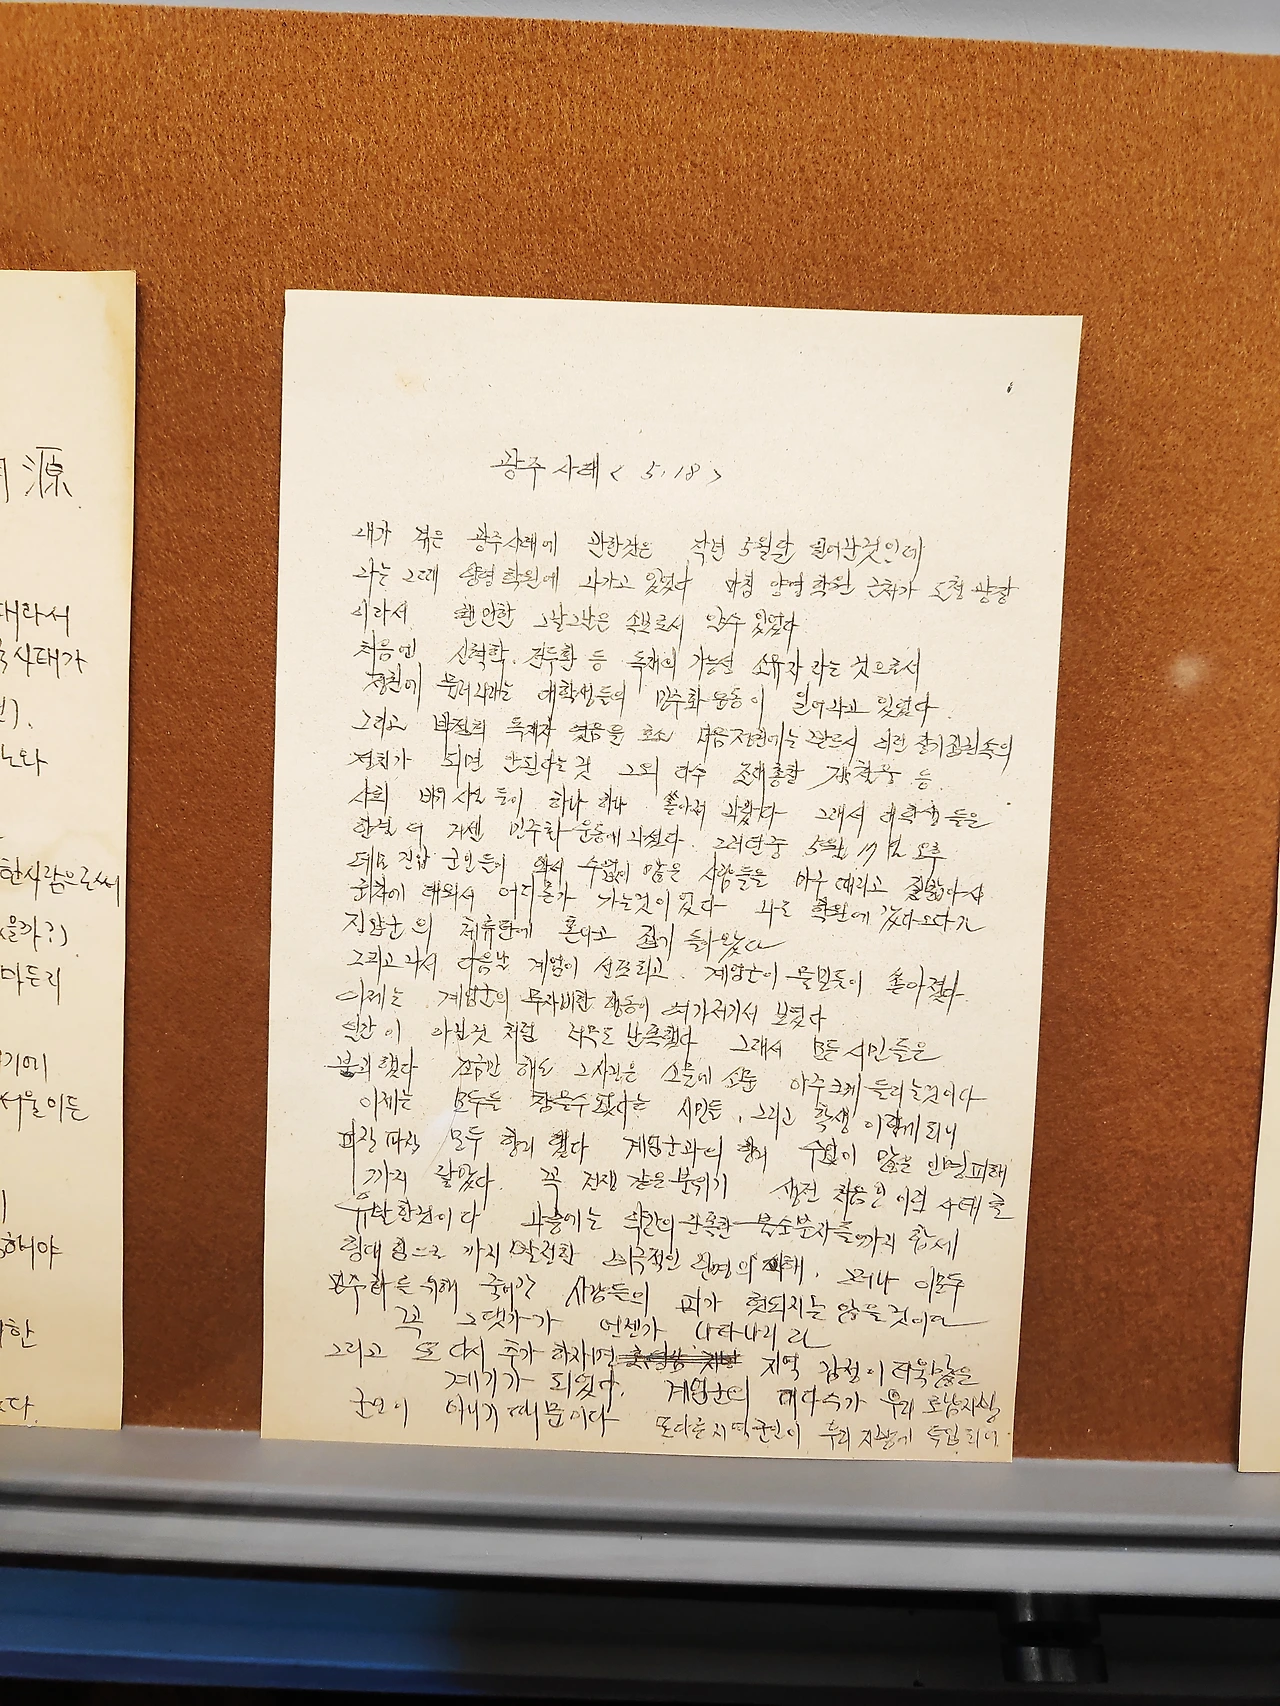 源
대라서
사태가
노와
한사람으로써
을까?)
마든리
기에
서울이든
해야
한
다.
광주 사태 < 5.18 >
내가 겪은 광주사태에 관한것은 작년 5월달 일어난것인데
나는 그때 학원에 나가고 있었다 마침 양영학원 근처가 도청 광장
이라서 웬만한 그날그날은 속보로서 알수 있었다
처음엔 신현확. 전두환 등 독재의 가능성 소유자 라는 것으로서
정권에 물러나라는 대학생들의 민주화 운동이 일어나고 있었다.
그리고 박정희 독재자 였음을 호소 다음정권에는 절대로 이런 장기집권속의
정치가 되면 안된다는 것 그외 다수 등
사회 비리 사실 들이 하나 하나 쏟아져 나왔다 그래서 대학생 들은
한결 더 거센 민주화 운동에 나섰다. 그러던중 5월 17일 오후
데모 진압 군인들이 와서 수없이 많은 사람들을 마구 때리고 짓밟다시
차에 태워서 어디론가 가는것이 있다 나도 학원에 갔다오다가
진압군의 최류탄에 혼나고 집에 돌아왔다
그리고 나서 다음날 계엄이 선포되고. 계엄군이 물밀듯이 쏟아졌다.
이제는 계엄군의 무자비한 행동이 여기저기서 보였다
인간이 아닌것 처럼 너무도 난폭했다 그래서 모든 시민들은
분괴했다 조금만 해도 그사건은 소문에 소문 아주크게 들리는것이다
이제는 모두들 참을수 없다는 시민들, 그리고 학생 이렇게 되니
피차 모두 항의 했다 계엄군과의 항의 수없이 많은 인명피해
까지 낳았다. 꼭 전쟁 같은 분위기 생전 처음인 이런 사태를
유발한것이다 나중에는 약간의 난폭한 불순분자들까지 합세
힘대 힘으로 까지 발전한 비극적인 인명의 피해. 그러나 이모두
민주화를 위해 죽어간 사람들의 피가 헛되지는 않을것이다
꼭 그댓가가 언젠가 나타나리라
그리고 또 다시 추가 하자면 지역 감정이 더욱많은
계기가 되었다. 계엄군의 대다수가 우리 호남지방
군인이 아니기 때문이다 또다른지역군인이 우리 지방에 투입되어